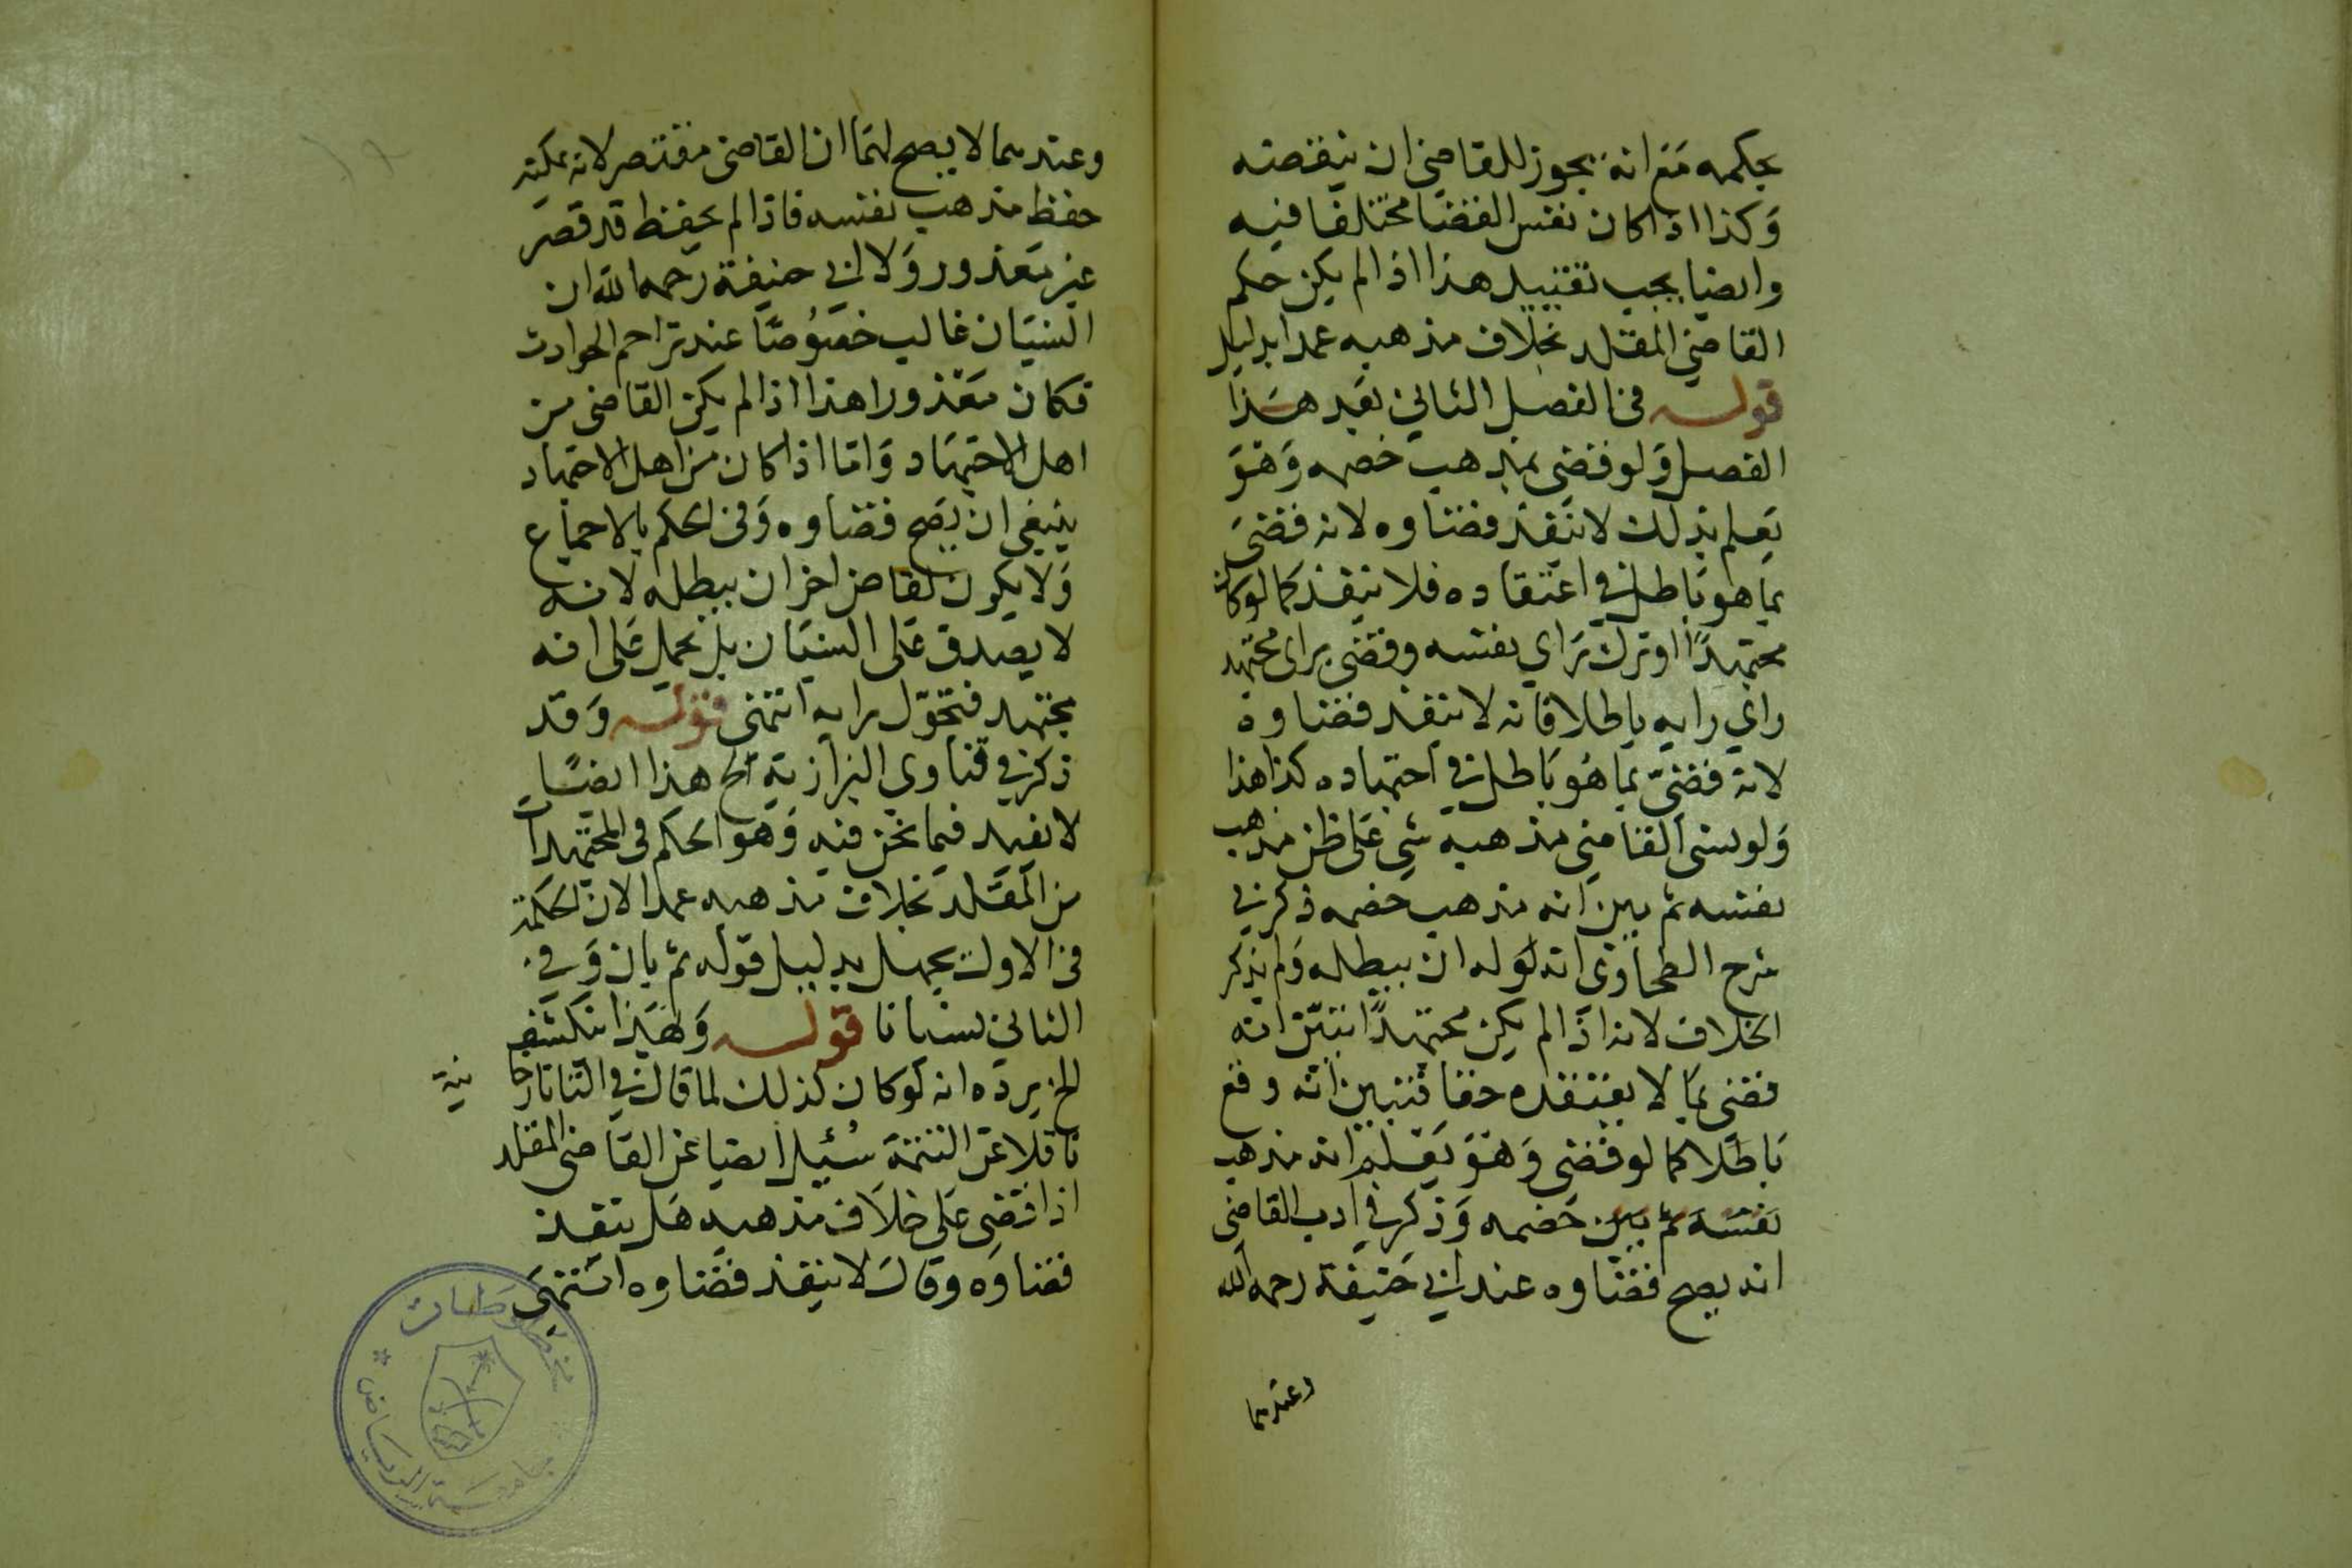 بحكمه مع انه يجوز للقاضي ان ينقضه
وكذا اذا كان نفس القضا مختلفا فيه
وايضا يجب تقييد هذا اذا لم يكن حكم
القاضي المقلد بخلاف مذهبه عمدا بدليل
قوله في الفصل الثاني بعد هذا
الفصل ولو قضى بمذهب خصمه وهو
يعلم بذلك لا ينفذ قضاوه لانه قضى
بما هو باطل في اعتقاده فلا ينفذ كما لو كان
مجتهدًا اوترك راي نفسه وقضى براى مجتهد
راي رايه باطلا فانه لا ينفذ قضاوه
لانه قضى بما هو باطل في اجتهاده كذا هذا
ولو نسى القاضي مذهبه شي على ظن مذهب
نفسه ثم تبين انه مذهب خصمه ذكر في
شرح الطحاوى انه له ان يبطله ولم يذكر
الخلاف لانه اذا لم يكن مجتهدًا تبين انه
قضى بما لا يعتقده حقا فتبين انه وقع
باطلا كما لو قضى وهو يعلم انه مذهب
نفسه ثم تبين خصمه وذكر في ادب القاضى
انه يصح قضاوه عند ابي حنيفة رحمه الله
وعندهما
وعندهما لا يصح لهما ان القاضى مقتصر لانه يمكنه
حفظ مذهب نفسه فاذا لم يحفظ قد قصر
غير معذور ولابي حنيفة رحمه الله ان
النسيان غالب خصوصًا عند تزاحم الحوادث
فكان معذورا هذا اذا لم يكن القاضى من
اهل الاجتهاد واما اذا كان من اهل الاجتهاد
ينبغي ان يصح قضاوه وفى الحكم بالاجماع
ولا يكون لقاض اخر ان يبطله لانه
لا يصدق على النسيان بل يحمل على انه
مجتهد فتحوّل رايه انتهى قوله وقد
ذكر في فتاوى البزازية الخ هذا ايضًا
لا يفيد فيما نحن فيه وهو الحكم فى المجتهدات
من المقلد بخلاف مذهبه عمدا لان الحكمة
فى الاول بجهل بدليل قوله ثم بان وفي
الثاني نسيانا قوله وبهذا انكشف
الخ يرده انه لو كان كذلك لما قال في التتارخا
نية
ناقلا عن التتمة سُئيل ايضا عن القاضى المقلد
اذا قضى على خلاف مذهبه هل ينفذ
قضاوه وقال لا ينفذ قضاوه انتهى
مخطوطات
جامعة الرياض